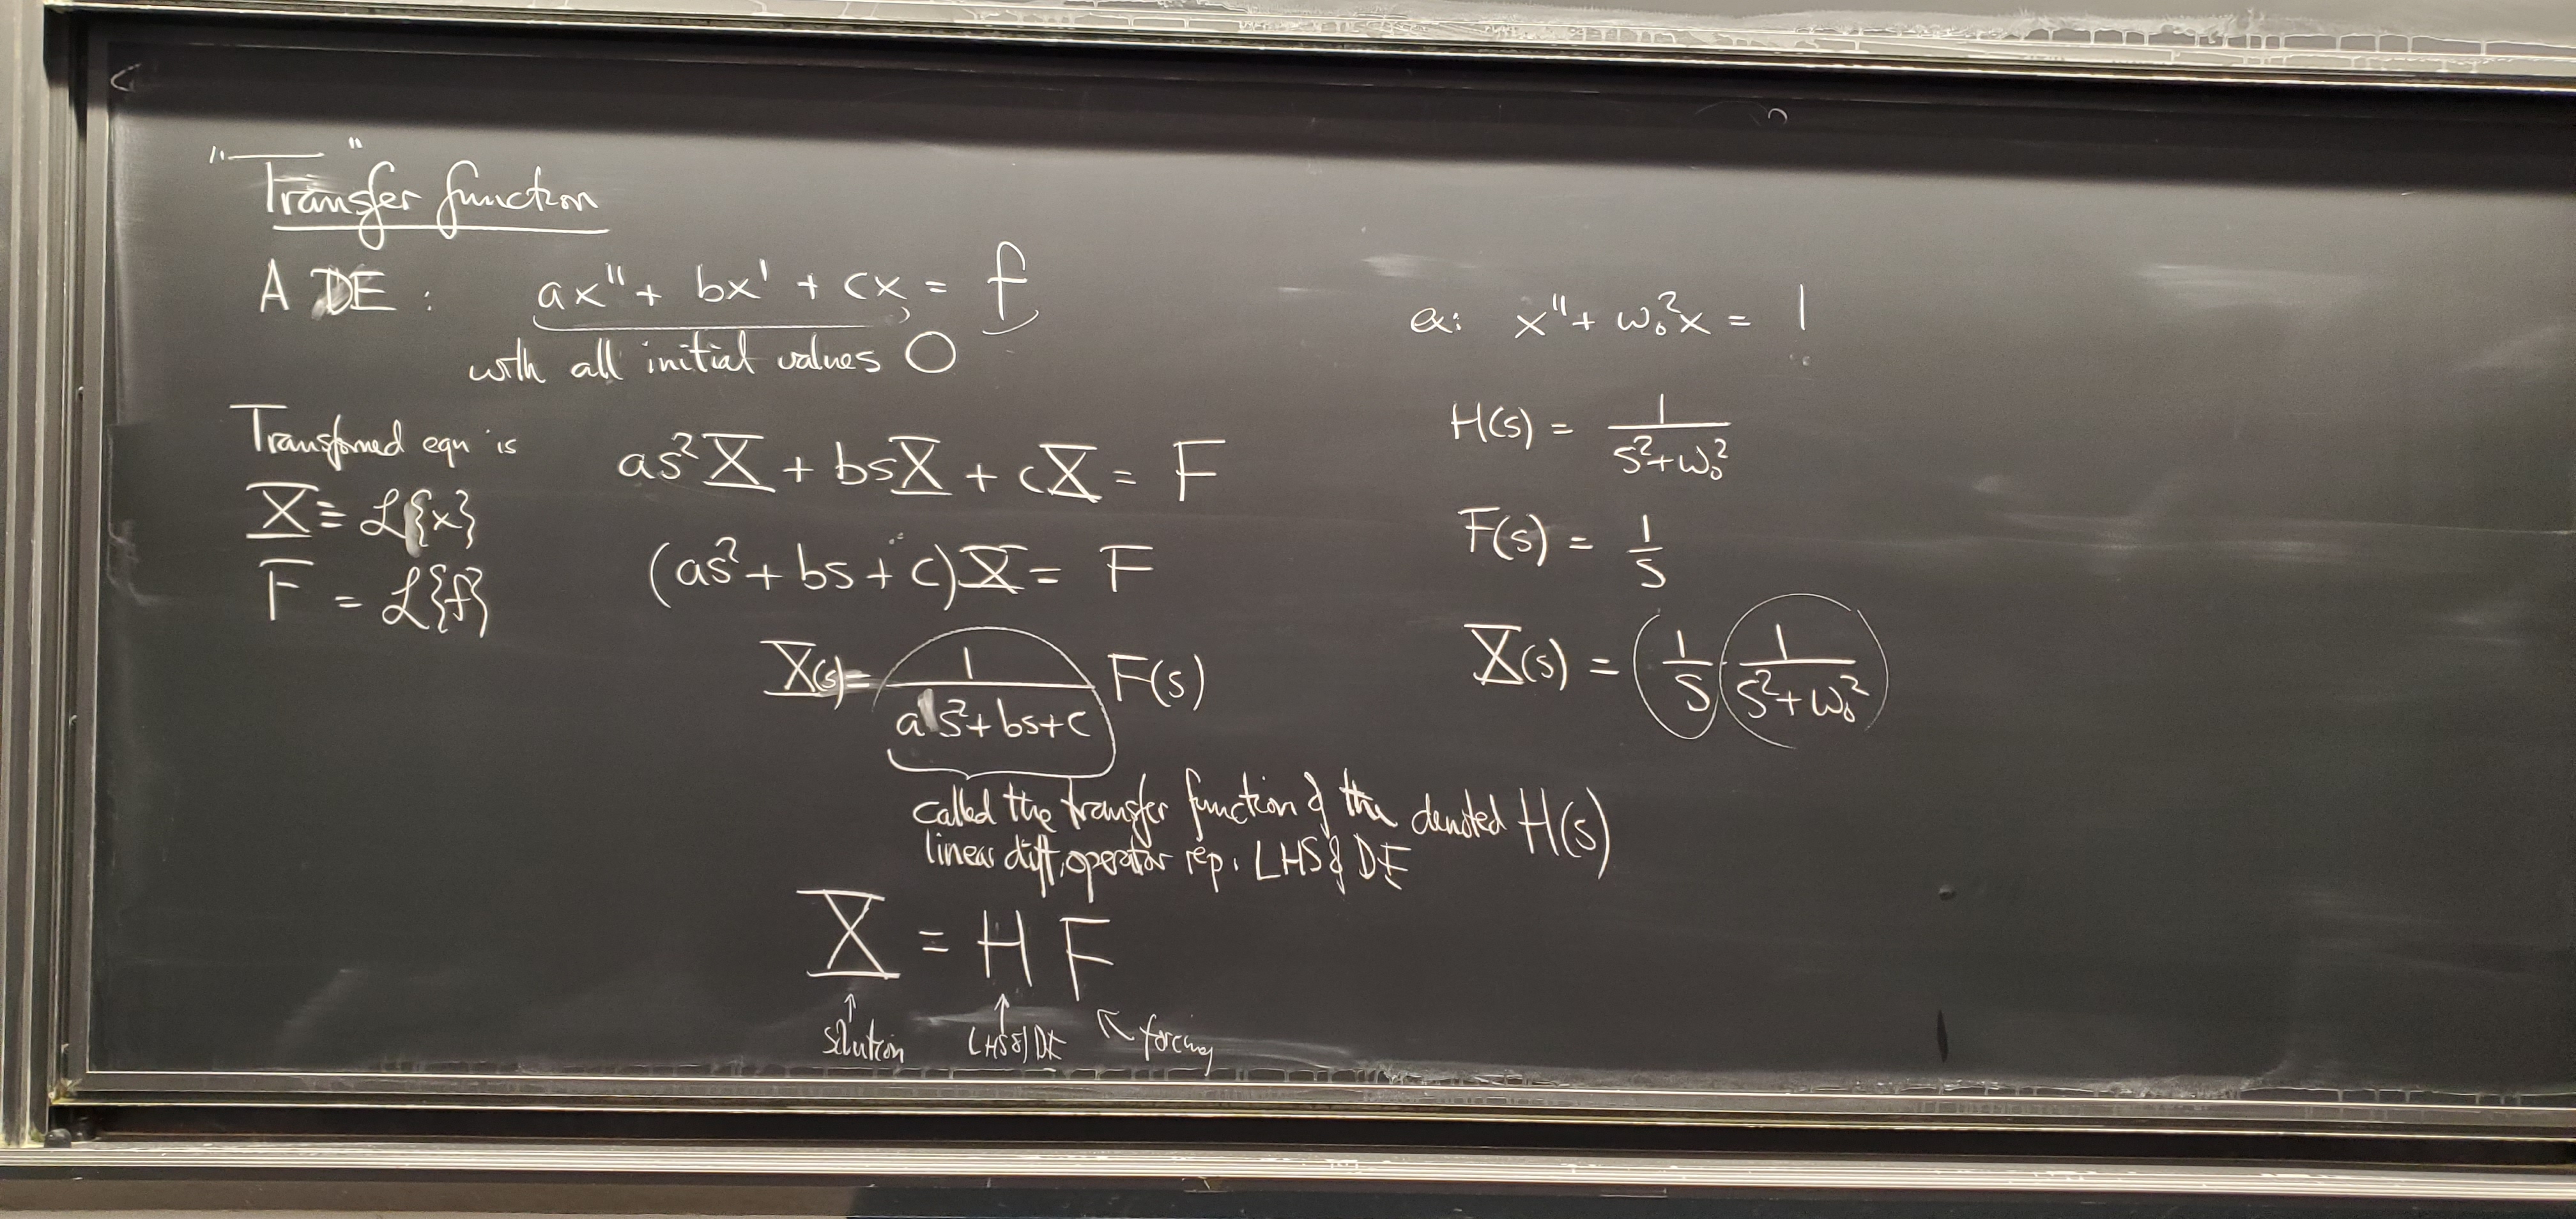 "Transfer function"
A DE: ax'' + bx' + cx = f
with all initial values 0
Transformed eqn is as²X + bsX + cX = F
X ≡ ℒ{x}
F = ℒ{f}
(as² + bs + c)X = F
X(s) = 1/(as² + bs + c) F(s)
called the transfer function of the
linear diff. operator rep. LHS of DE
denoted H(s)
X = H F
↑ solution ↑ LHS of DE ↖ forcing
ex: x'' + ω₀²x = 1
H(s) = 1/(s² + ω₀²)
F(s) = 1/s
X(s) = (1/s) · 1/(s² + ω₀²)